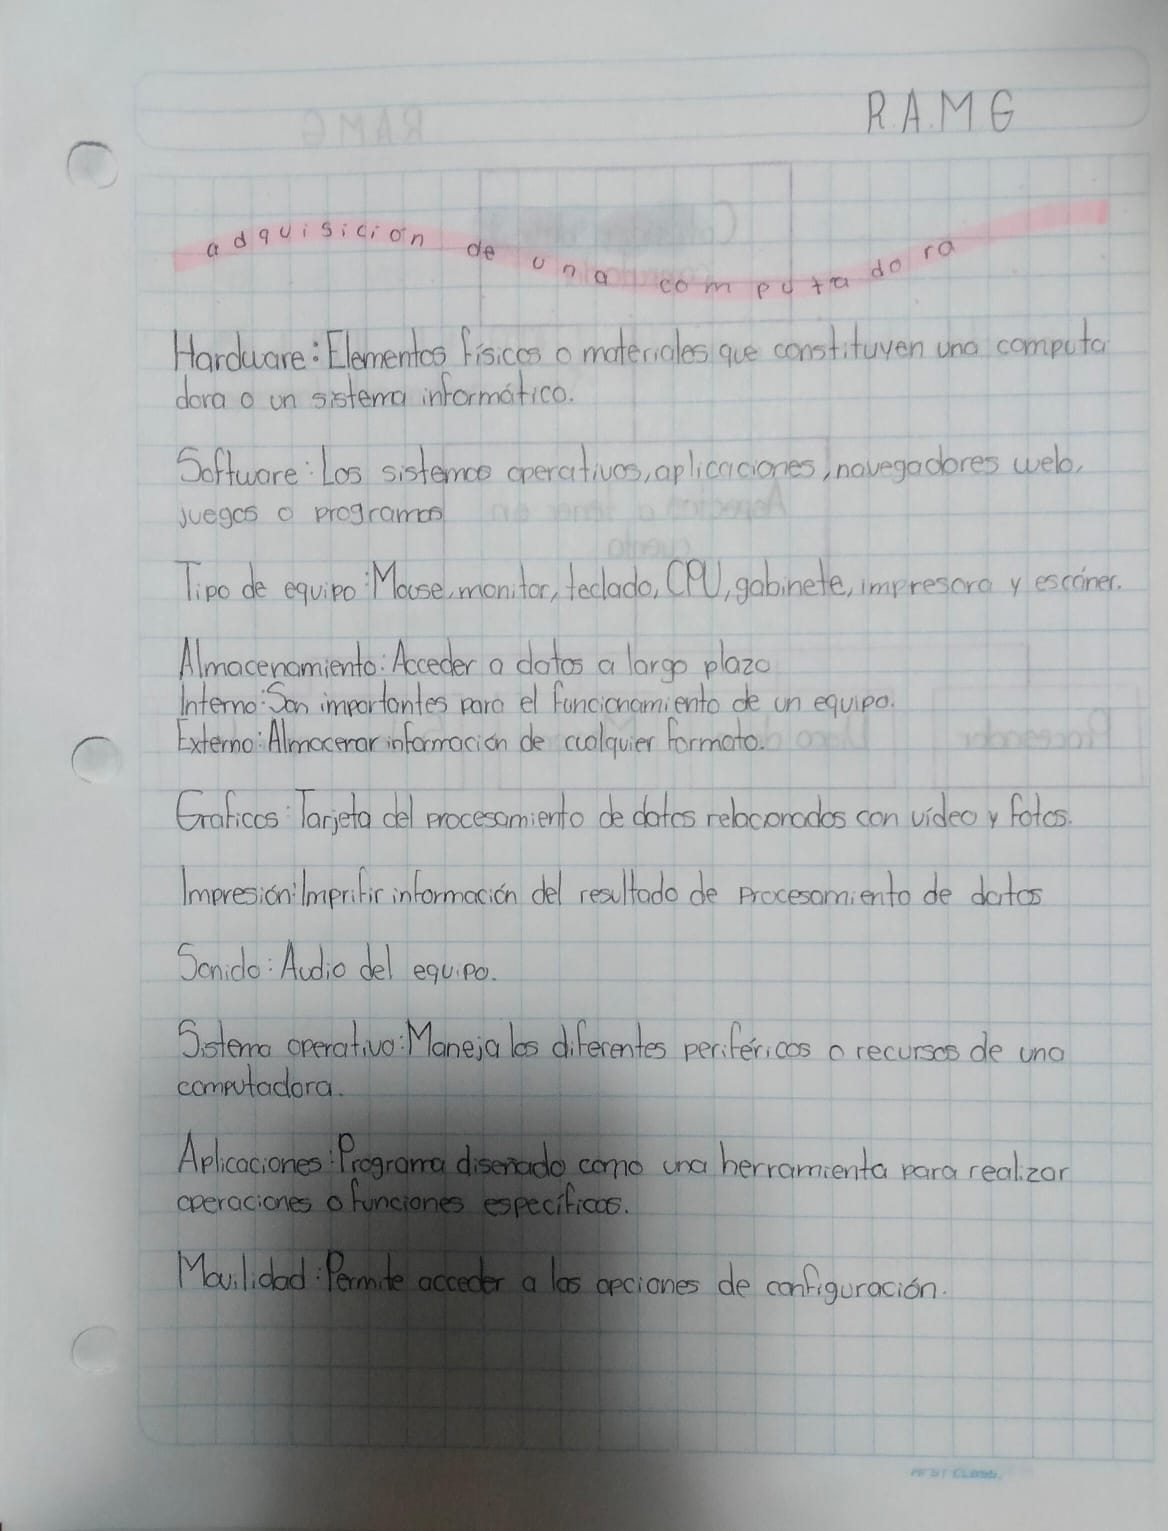 R.A.M.G
adquisición de una computadora
Hardware: Elementos físicos o materiales que constituyen una computa
dora o un sistema informático.
Software: Los sistemas operativos, aplicaciones, navegadores web,
juegos o programas
Tipo de equipo: Mouse, monitor, teclado, CPU, gabinete, impresora y escáner.
Almacenamiento: Acceder a datos a largo plazo
Interno: Son importantes para el funcionamiento de un equipo.
Externo: Almacenar información de cualquier formato.
Graficos: Tarjeta del procesamiento de datos relacionados con vídeo y fotos.
Impresión: información del resultado de procesamiento de datos
Sonido: Audio del equipo.
Sistema operativo: Maneja los diferentes periféricos o recursos de una
computadora.
Aplicaciones: Programa diseñado como una herramienta para realizar
operaciones o funciones específicas.
Movilidad: Permite acceder a las opciones de configuración.